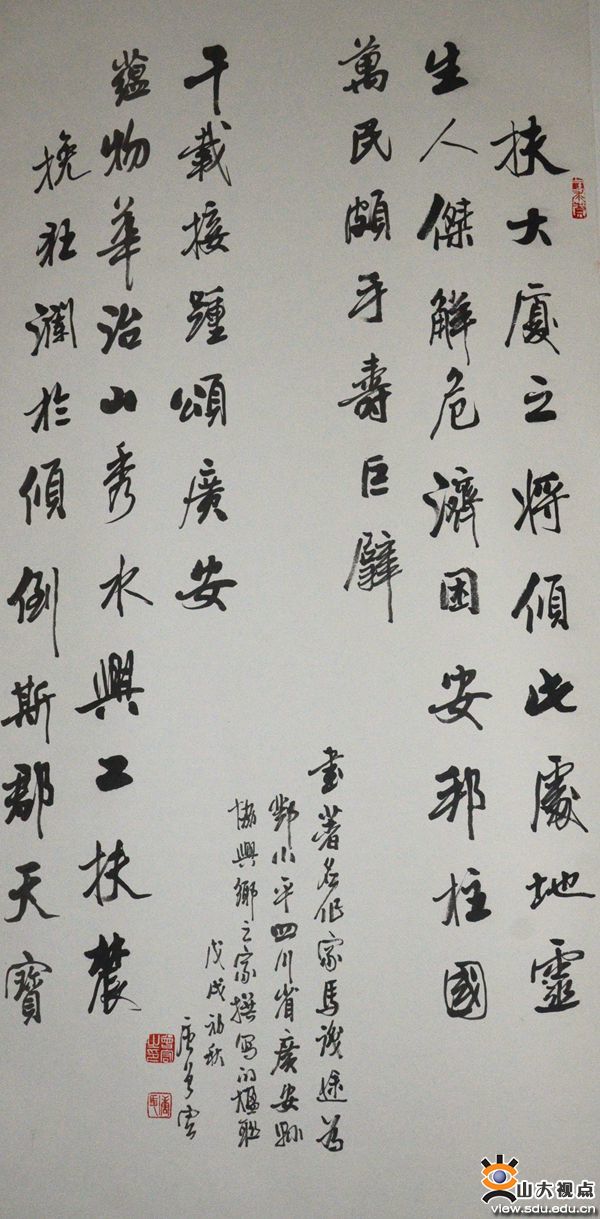 扶大廈之將傾此處地靈
生人傑解危濟困安邦柱國
萬民頗手壽巨擘
挽狂瀾於傾倒斯郡天寶
蘊物華治山秀水興工扶農
千載接踵頌廣安
書著名作家馬識途為
鄧小平四川省廣安縣
協興鄉之家撰写的楹联
戊戌初秋
山大视点
view.sdu.edu.cn